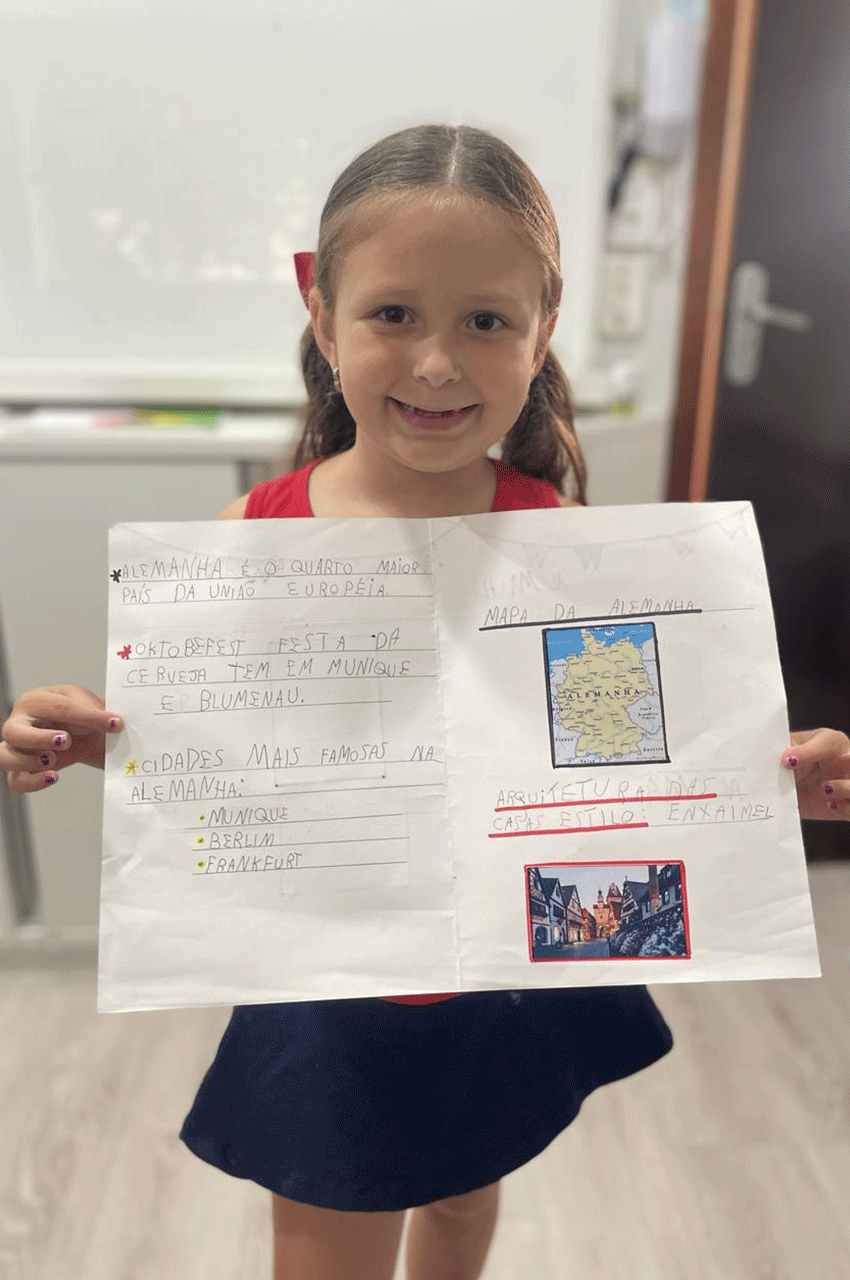 *ALEMANHA É O QUARTO MAIOR
PAÍS DA UNIAÕ EUROPÉIA.
*OKTOBEFEST FESTA DA
CERVEJA TEM EM MUNIQUE
E BLUMENAU.
*CIDADES MAIS FAMOSAS NA
ALEMANHA:
•MUNIQUE
•BERLIM
•FRANKFURT
MAPA DA ALEMANHA
ALEMANHA
ARQUITETURA DAS
CASAS ESTILO: ENXAIMEL